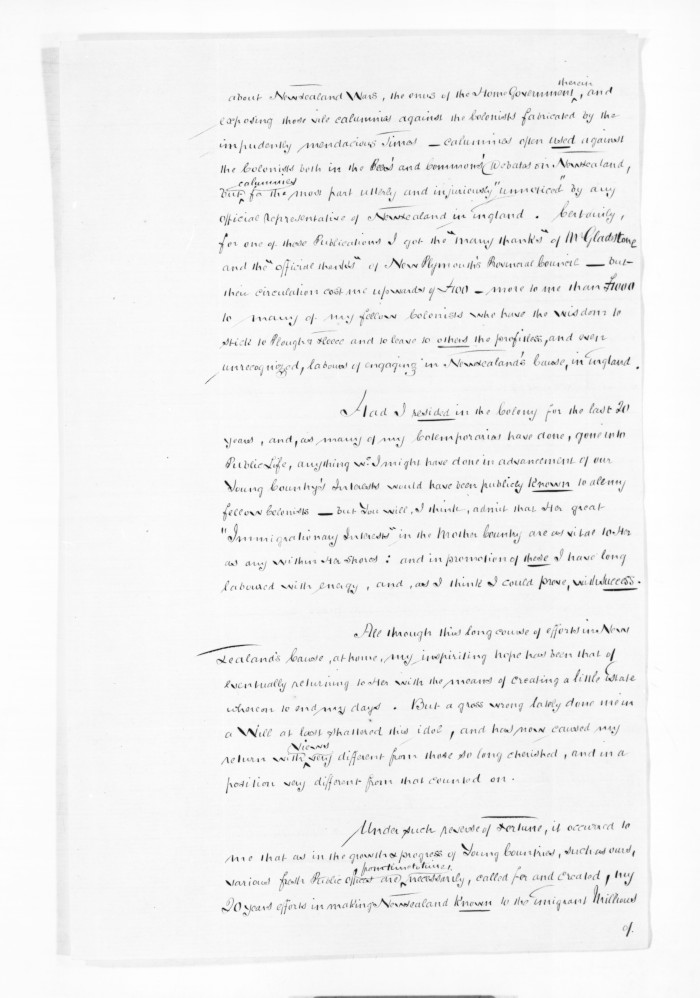 therein
about New Zealand Wars, the onus of the Home Government, and
exposing those vile calumnies against the Colonists fabricated by the
impudently mendacious Times — calumnies often used against
the Colonists both in the Peers' and Commons' Debates on New Zealand,
calumnies
but for the most part utterly and injuriously "unnoticed" by any
official representative of New Zealand in England. Certainly,
for one of these Publications I got the "many thanks" of Mr Gladstone
and the "official thanks" of New Plymouth's Provincial Council — but
their circulation cost me upwards of £100 — more to me than £1000
to many of my fellow Colonists who have the wisdom to
stick to Plough & Fleece and to leave to others the profitless, and even
unrecognized, labours of engaging in New Zealand's Cause, in England.
Had I resided in the Colony for the last 20
years, and, as many of my Cotemporaries have done, gone into
Public Life, anything wh I might have done in advancement of our
Young Country's Interests would have been publicly known to all my
fellow Colonists — but You will, I think, admit that Her great
"Immigrationary Interests" in the Mother Country are as vital to Her
as any within Her shores: and in promotion of these I have long
laboured with energy, and, as I think I could prove, with success.
All through this long course of efforts in New
Zealand's Cause, at home, my inspiriting hope has been that of
eventually returning to Her with the means of creating a little Estate
whereon to end my days. But a gross wrong lately done me in
a Will at last shattered this idol, and has now caused my
Views
return with very different from those so long cherished, and in a
position very different from that counted on.
Under such reverse of Fortune, it occurred to
me that as in the growth & progress of Young Countries, such as ours,
from time to time,
various fresh Public offices are necessarily, called for and created, my
20 years efforts in making New Zealand known to the Emigrant Millions
of.